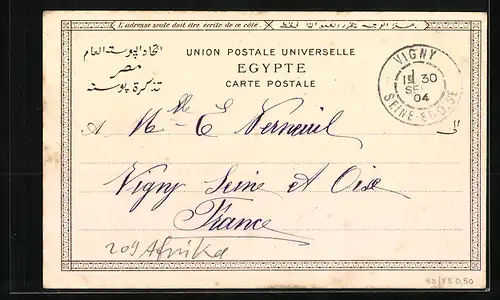 L'adresse seule doit être écrite de ce côté.
هذا الوجه مقرر للعنوان فقط
اتحاد البوسته العام
مصر
تذكرة بوسته
UNION POSTALE UNIVERSELLE
EGYPTE
CARTE POSTALE
VIGNY
30
SE
04
SEINE-ET-OISE
A Mlle E Verneuil
الى
Vigny Seine et Oise
France
209 Afrika
FS 0,50